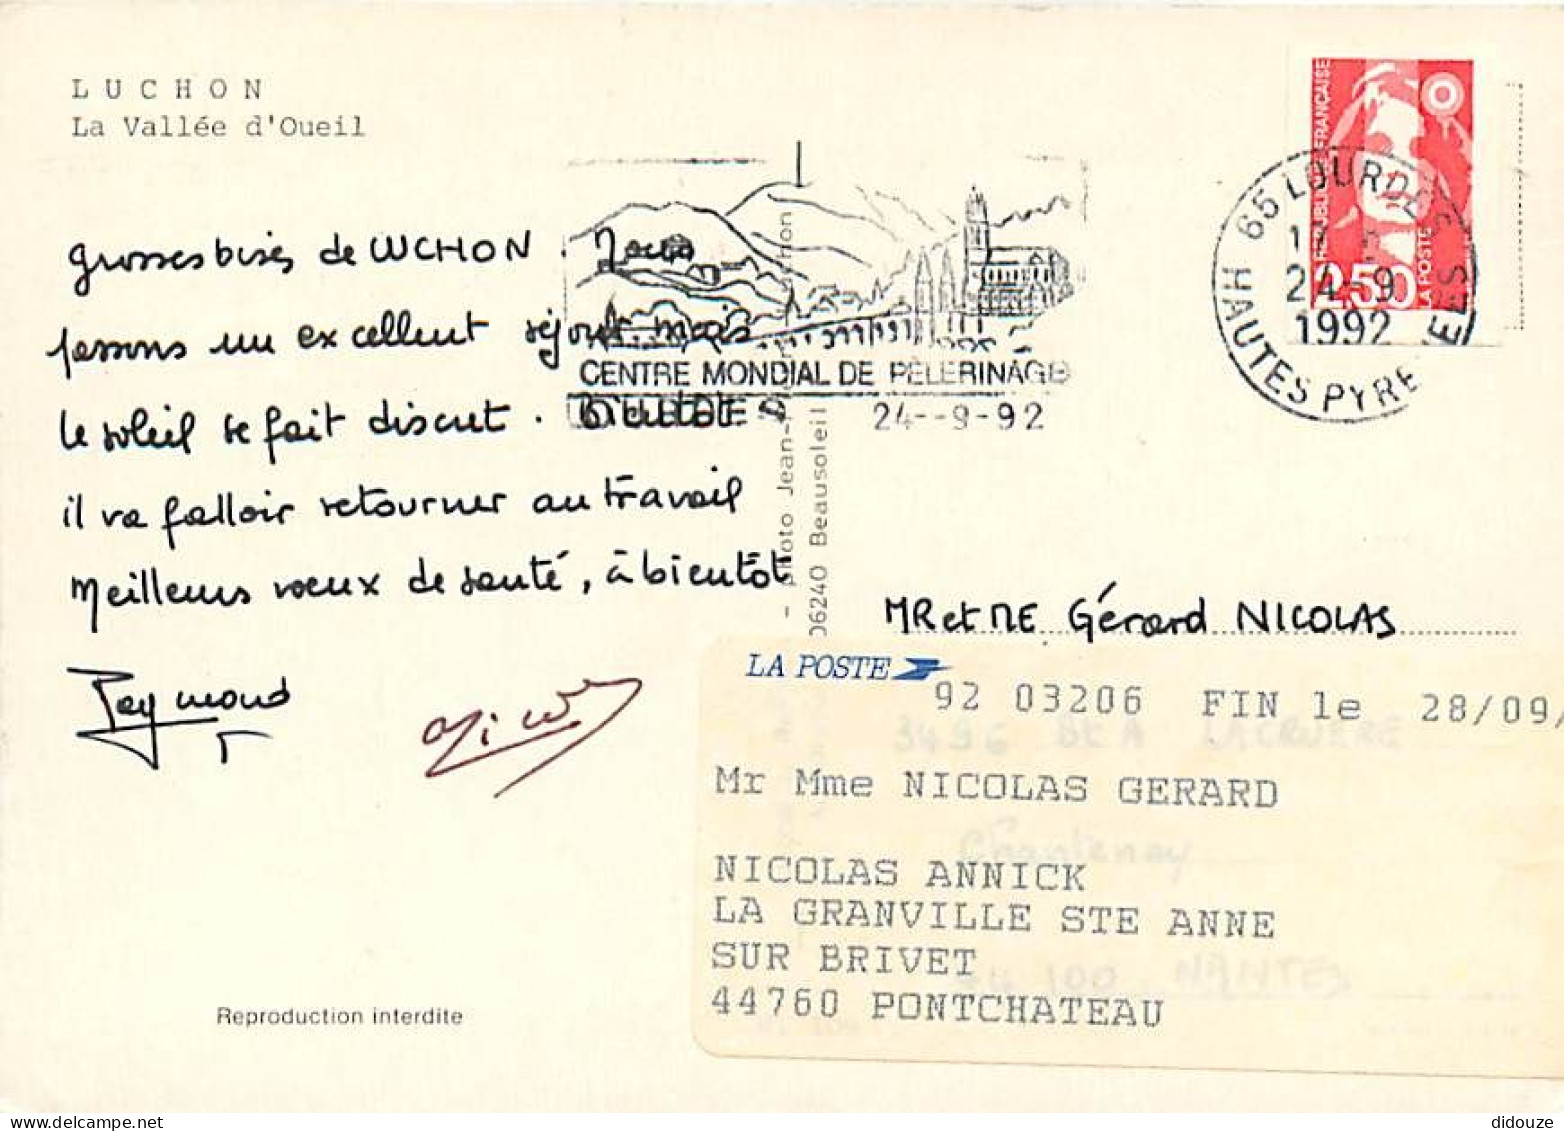 LUCHON
La Vallée d'Oueil
grosses bises de LUCHON. Nous
passons un excellent séjour mais
le soleil se fait discret. Bientôt
il va falloir retourner au travail
Meilleurs voeux de santé, à bientôt
Raymond
Reproduction interdite
CENTRE MONDIAL DE PÈLERINAGE
24--9-92
photo Jean-
06240 Beausoleil
RÉPUBLIQUE FRANÇAISE
LA POSTE
2,50
65 LOURDES
24-9
1992
HAUTES PYRENEES
MR et ME Gérard NICOLAS
LA POSTE
92 03206 FIN le 28/09/
3496 Bt A LACRUERE
Mr Mme NICOLAS GERARD
Chantenay
NICOLAS ANNICK
LA GRANVILLE STE ANNE
SUR BRIVET
44 100 NANTES
44760 PONTCHATEAU
www.delcampe.net
didouze